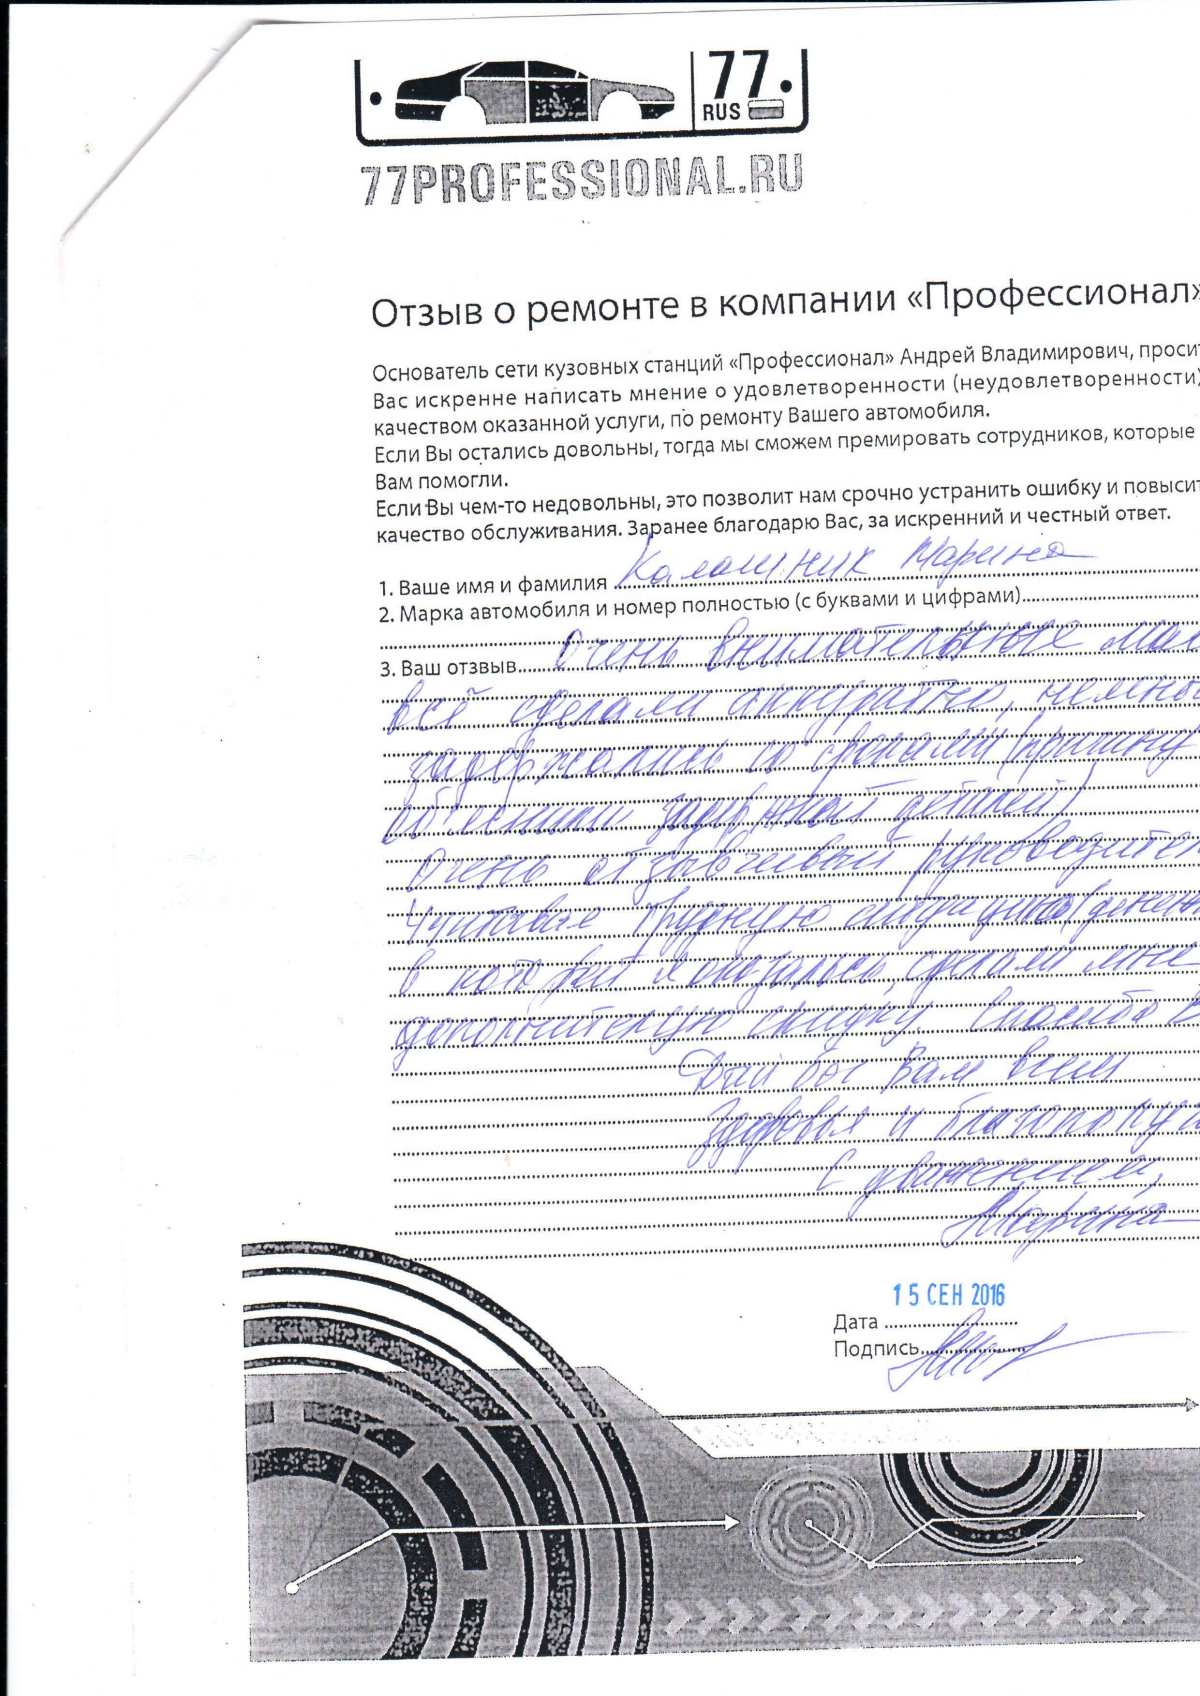 77
RUS
77PROFESSIONAL.RU
Отзыв о ремонте в компании «Профессионал»
Основатель сети кузовных станций «Профессионал» Андрей Владимирович, просит
Вас искренне написать мнение о удовлетворенности (неудовлетворенности)
качеством оказанной услуги, по ремонту Вашего автомобиля.
Если Вы остались довольны, тогда мы сможем премировать сотрудников, которые
Вам помогли.
Если Вы чем-то недовольны, это позволит нам срочно устранить ошибку и повысит
качество обслуживания. Заранее благодарю Вас, за искренний и честный ответ.
1. Ваше имя и фамилия Калашник Марина
2. Марка автомобиля и номер полностью (с буквами и цифрами)
3. Ваш отзвыв Очень внимательные
всё сделали аккуратно, немны
задержались со сроками (причину
объяснили задержкой деталей)
Очень отзывчивый руководител
Учитывая трудную ситуацию (денеж
в которой я оказалась, сделали мне
дополнительную скидку. Спасибо В
Дай бог Вам всем
Здоровья и благополуч
С уважением,
Марина
15 СЕН 2016
Дата
Подпись